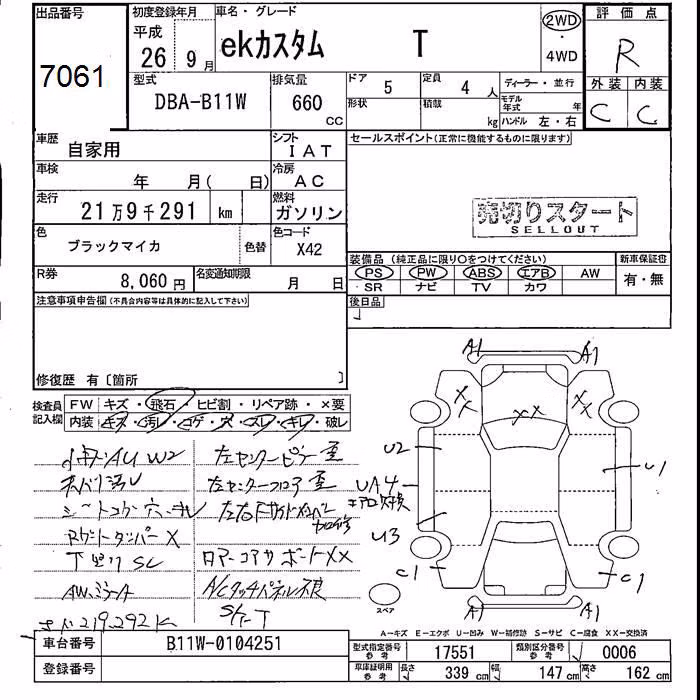 出品番号
7061
初度登録年月
平成
26 9月
車名・グレード
ekカスタム T
2WD
・
4WD
評価点
R
外装 内装
C C
型式
DBA-B11W
排気量
660
CC
ドア 5
形状
定員 4 人
積載 kg
ディーラー・並行
モデル年式 年
ハンドル 左・右
車歴 自家用
シフト IAT
車検 年 月( 日)
冷房 AC
走行 21万9千291 km
燃料 ガソリン
色 ブラックマイカ 色替
色コード X42
R券 8,060円
名変通知期限 月 日
セールスポイント(正常に機能するものに限ります)
売切りスタート
SELLOUT
装備品(純正品に限り○をつけてください)
新車保証書
PS PW ABS エアB AW
SR ナビ TV カワ
有・無
後日品
注意事項申告欄(不具合内容等は具体的に記入して下さい)
修復歴 有〔箇所 〕
検査員記入欄
FW キズ・飛石・ヒビ割・リペア跡・×要
内装 キズ・汚レ・コゲ・穴・スレ・キレ・破レ
小キズAU W2
左センターピラー歪
左センターフロア歪
シートコゲ穴・キレ
T
AC
A1 A1
XX XX XX
U2 U1
UA4
エアロ欠損
U3
C1 C1
A1 A1
スペア
A-キズ E-エクボ U-凹み W-補修跡 S-サビ C-腐食 XX-交換済
車台番号 B11W-0104251
登録番号
型式指定番号 参考 17551
類別区分番号 参考 0006
車庫証明用 参考 長さ 339 cm 幅 147 cm 高さ 162 cm